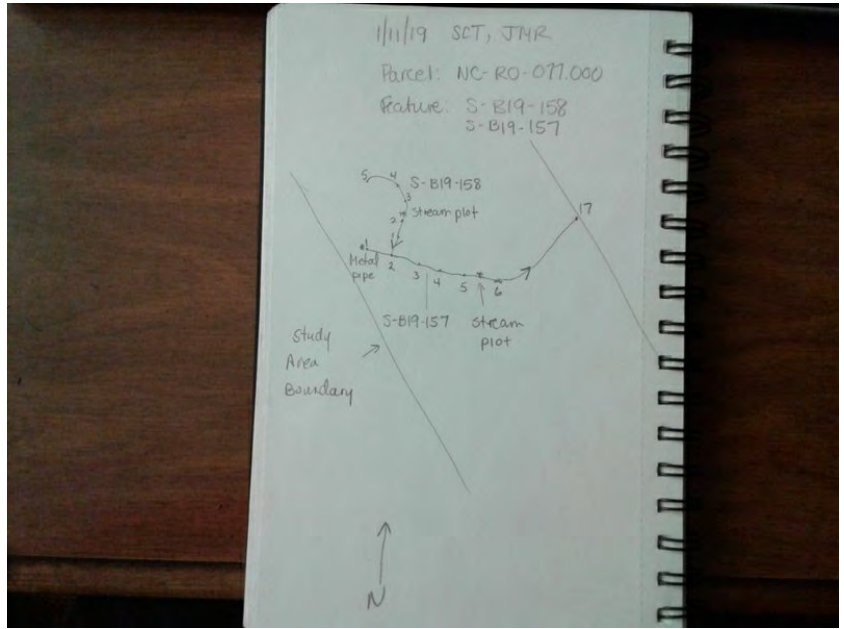 1/11/19 SCT, JMR
Parcel: NC-RO-077.000
Feature: S-B19-158
S-B19-157
5
4
S-B19-158
3
2
Stream plot
17
1
Metal
pipe
2
3
4
5
6
S-B19-157
Stream
plot
Study
Area
Boundary
N